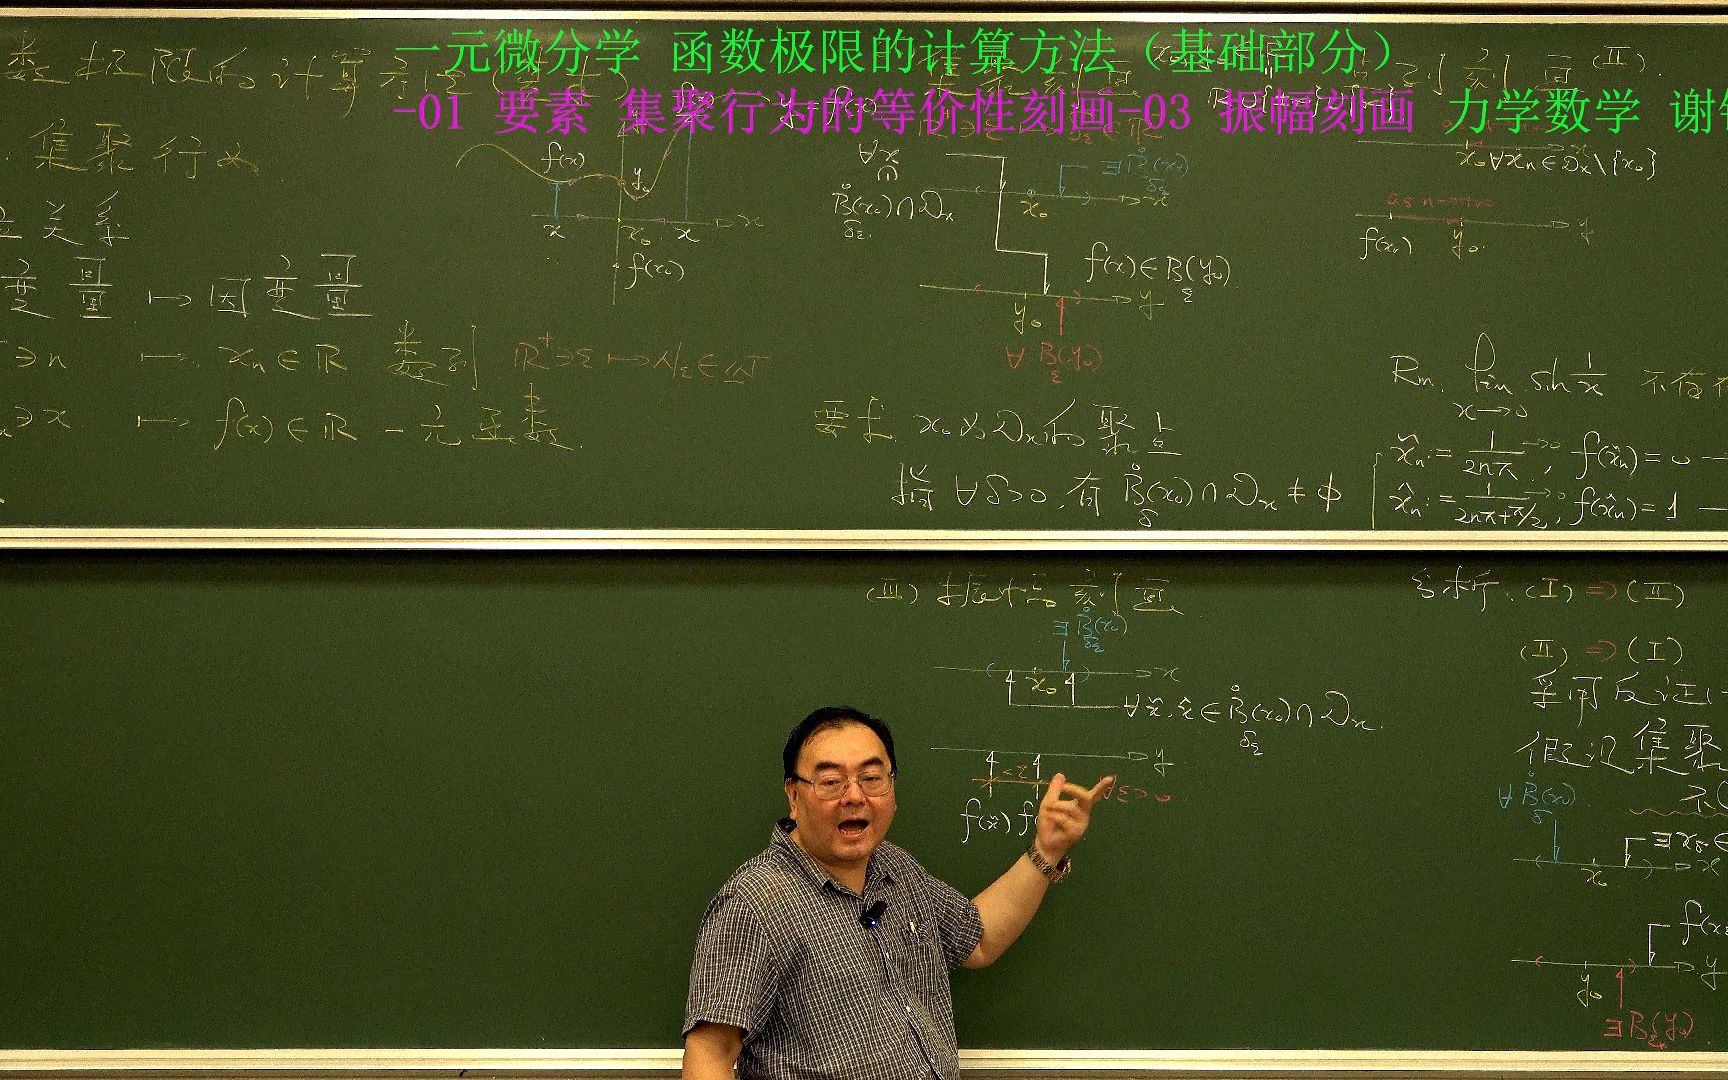 一元微分学 函数极限的计算方法（基础部分）
-01 要素 集聚行为的等价性刻画-03 振幅刻画 力学数学 谢
数极限的计算方法
集聚行为
关系
变量 ↦ 因变量
∋n ↦ xₙ∈ℝ 数列 ℝ⁺∋ε ↦ N_ε∈ℕ
∋x ↦ f(x)∈ℝ 一元函数
f(x)
y₀
x x₀ x x
f(x₀)
∀x
B̊_{δ_ε}(x₀)∩𝒟ₓ
∃B̊_{δ_ε}(x₀)
x₀ x
f(x)∈B_ε(y₀)
y₀ y
∀B_ε(y₀)
要求 x₀为𝒟ₓ的聚点
指 ∀δ>0, 有 B̊_δ(x₀)∩𝒟ₓ≠φ
刻画 (Ⅱ).
x₀ ∀xₙ∈𝒟ₓ\{x₀}
as n→+∞
f(xₙ) y₀ y
Rm. lim sin 1/x 不存
x→0
x̌ₙ:=1/2nπ→0; f(x̌ₙ)=0
x̂ₙ:=1/(2nπ+π/2)→0; f(x̂ₙ)=1
(Ⅲ) 振幅刻画
∃B̊_{δ_ε}(x₀)
x₀ x
∀x̌,x̂∈B̊_{δ_ε}(x₀)∩𝒟ₓ.
y
<ε ∀ε>0
f(x̌) f(
分析. (Ⅰ)⇒(Ⅱ)
(Ⅱ)⇒(Ⅰ)
采用反证
假设集聚
∀B̊_δ(x₀) 不
∃x_δ∈
x₀ x
f(x_δ
y₀ y
∃B_{ε*}(y₀)